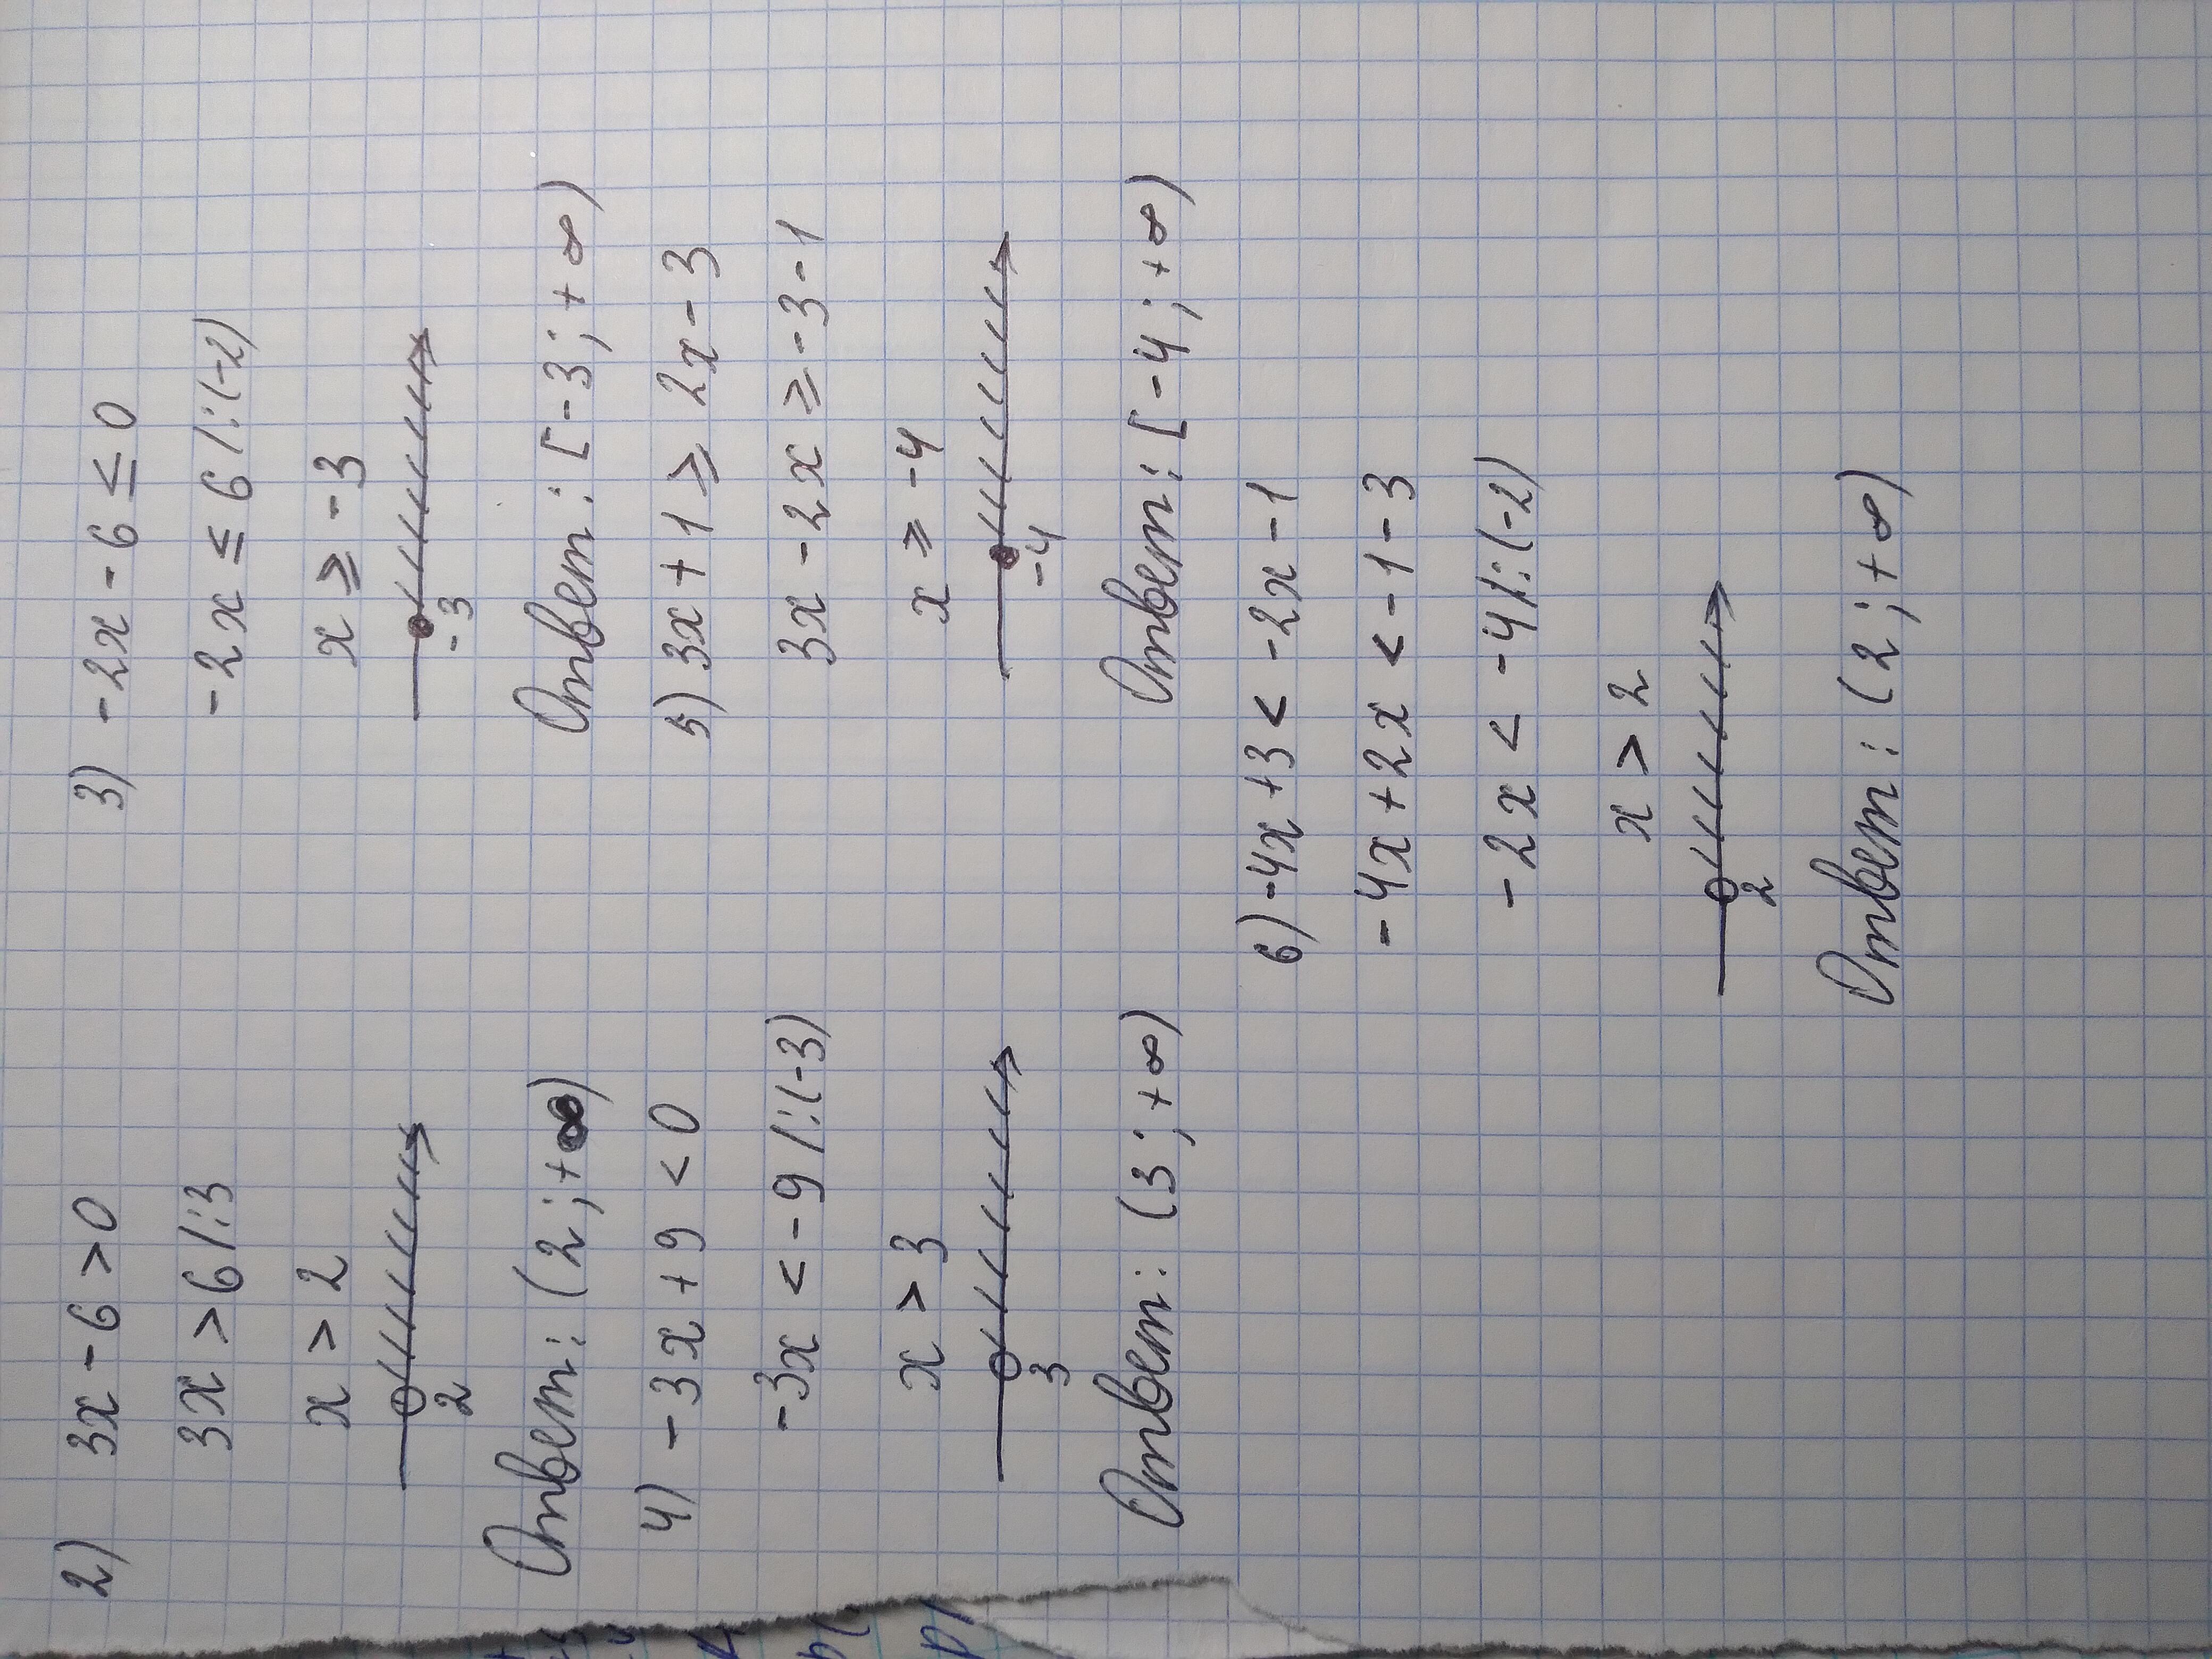 2) 3x - 6 > 0
3x > 6 /:3
x > 2
2
Ответ: (2; +∞)
3) -2x - 6 ≤ 0
-2x ≤ 6 /:(-2)
x ≥ -3
-3
Ответ: [-3; +∞)
4) -3x + 9 < 0
-3x < -9 /:(-3)
x > 3
3
Ответ: (3; +∞)
5) 3x + 1 ≥ 2x - 3
3x - 2x ≥ -3 - 1
x ≥ -4
-4
Ответ: [-4; +∞)
6) -4x + 3 < -2x - 1
-4x + 2x < -1 - 3
-2x < -4 /:(-2)
x > 2
2
Ответ: (2; +∞)